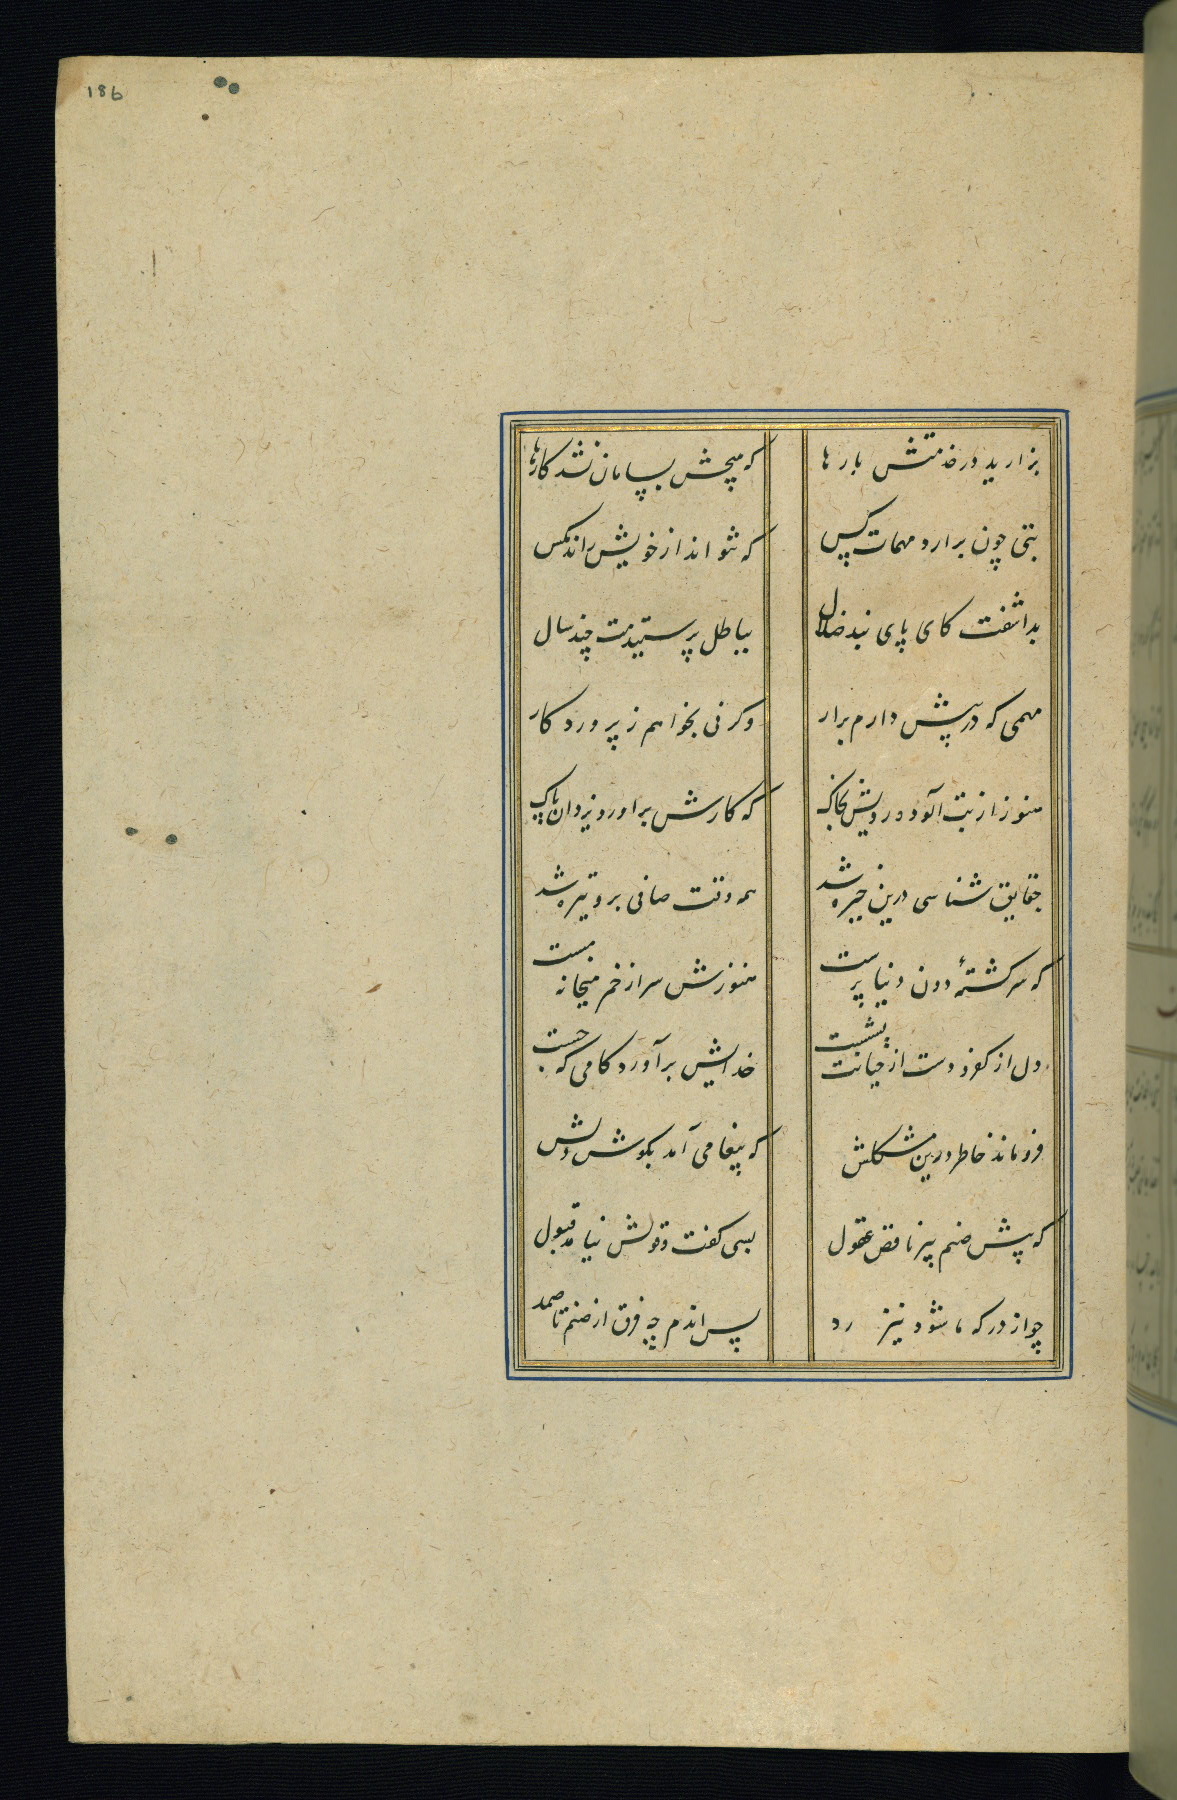 186
بزارید در خدمتش بارها
که هیچش بسامان نشد کارها
بتی چون برارد مهمات کس
که نتواند از خویش راند مکس
بداشفت کای پای بند ضلال
بباطل پرستیدمت چند سال
مهمی که در پیش دارم برار
وکرنی بخواهم ز پروردکار
هنوز از بت آلوده رویش بخاک
که کارش براورد یزدان پاک
حقایق شناسی درین خیره شد
همه وقت صافی برو تیره شد
که سرکشتهٔ دون دنیا پرست
هنوزش سر از خم میخانه مست
دل از کفر و دست از خیانت بشست
خدایش برآورد کامی که جست
فرو ماند خاطر درین مشکلش
که پیغامی آمد بکوش دلش
که پیش صنم پیر ناقص عقول
بسی کفت و قولش نیامد قبول
چو از درکه ما شود نیز رد
پس اندم چه فرق از صنم تا صمد